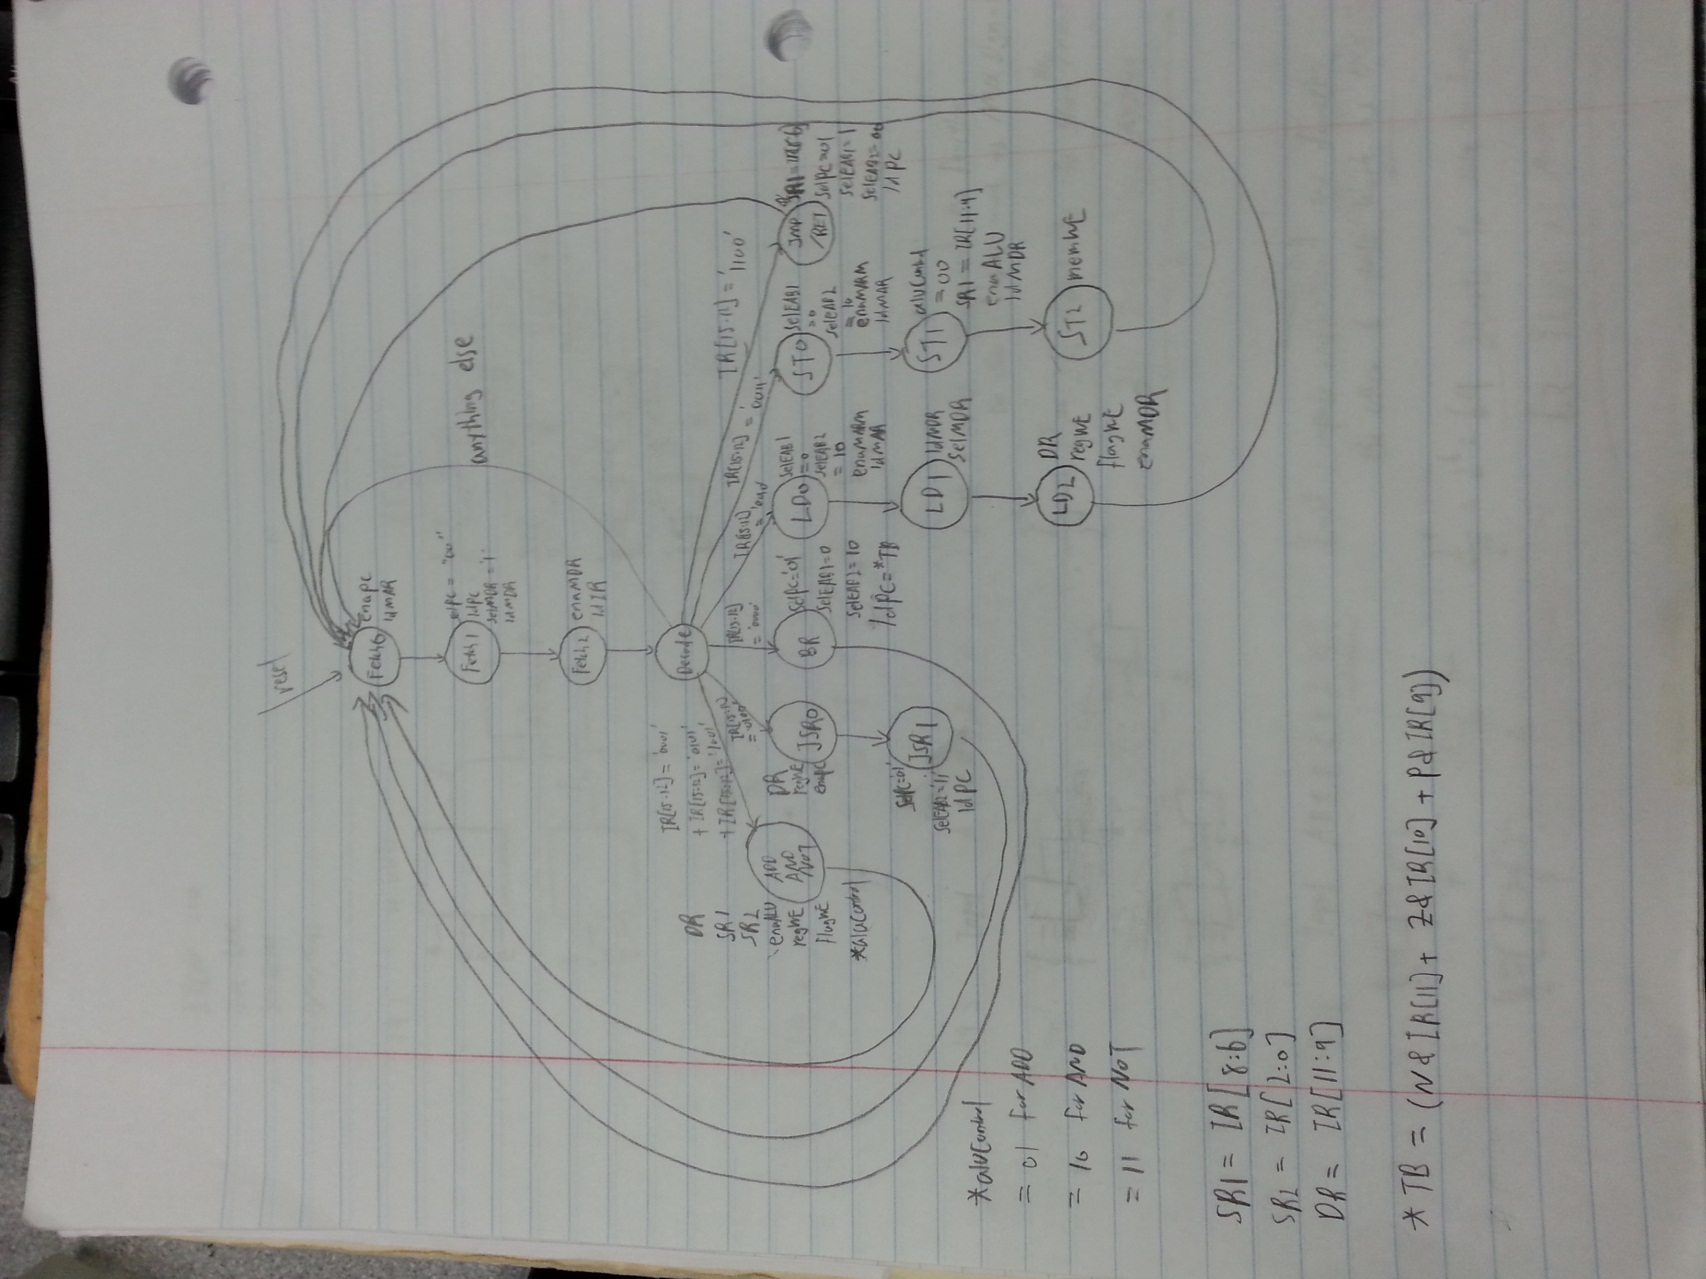 reset
Fetch0
enaPC
ldMAR
Fetch1
selPC = "00"
ldPC
selMDR = '1'
ldMDR
Fetch2
enaMDR
ldIR
Decode
anything else
IR[15:12] = '0001'
+ IR[15:12] = '0101'
+ IR[15:12] = '1001'
ADD
AND
NOT
DR
SR1
SR2
enaALU
regWE
flagWE
*aluControl
IR[15:12]
= '0100'
JSR0
DR
regWE
enaPC
JSR1
selPC='01'
selEAB2='11'
ldPC
IR[15:12]
= '0000'
BR
selPC='01'
selEAB1=0
selEAB2=10
ldPC=*TB
IR[15:12]
LD0
selEAB1
=0
selEAB2
= 10
enaMARM
ldMAR
LD1
ldMDR
selMDR
LD2
DR
regWE
flagWE
enaMDR
IR[15:12] = '0011'
ST0
selEAB1
=0
selEAB2
= 10
enaMARM
ldMAR
ST1
aluControl
= 00
SR1 = IR[11:9]
enaALU
ldMDR
ST2
memWE
IR[15:12] = '1100'
JMP
/RET
selPC=01
selEAB1=1
selEAB2=00
ldPC
*aluControl
= 01 for ADD
= 10 for AND
= 11 for NOT
SR1 = IR[8:6]
SR2 = IR[2:0]
DR = IR[11:9]
* TB = (N&IR[11] + Z&IR[10] + P&IR[9])